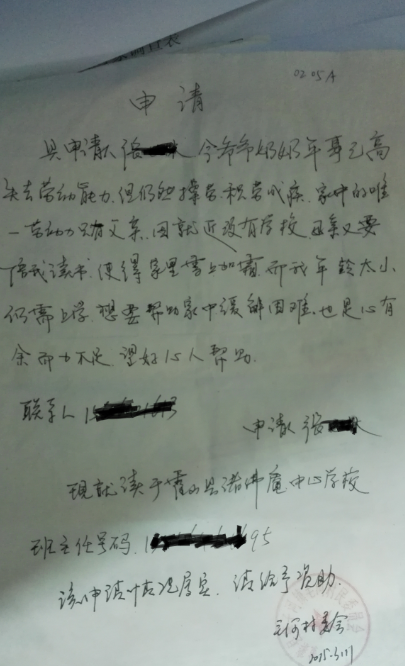 0205A
申请
具申请人张 今爷爷奶奶年事已高
失去劳动能力,但仍然操劳,积劳成疾,家中的唯
一劳动力只有父亲,因就近没有学校,母亲又要
陪我读书,使得家里雪上加霜,而我年龄太小
仍需上学,想要帮助家中缓解困难,也是心有
余而力不足,望好心人帮助.
联系人1
申请人张
现就读于霍山县诸佛庵中心学校
班主任号码.1 95
该申请情况属实,请给予资助.
2015.3.11